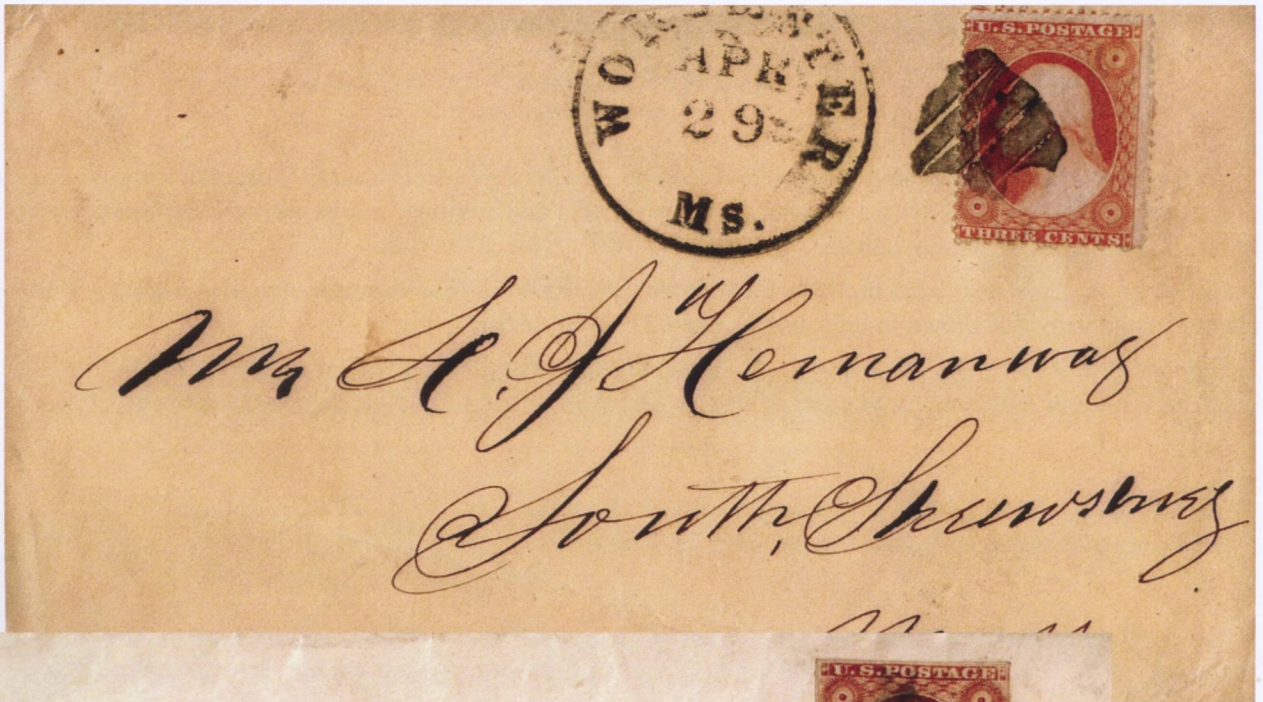 WORCESTER
APR
29
MS.
U.S.POSTAGE
THREE CENTS
H. J. Hemanway
South, Shrewsbury
U.S.POSTAGE